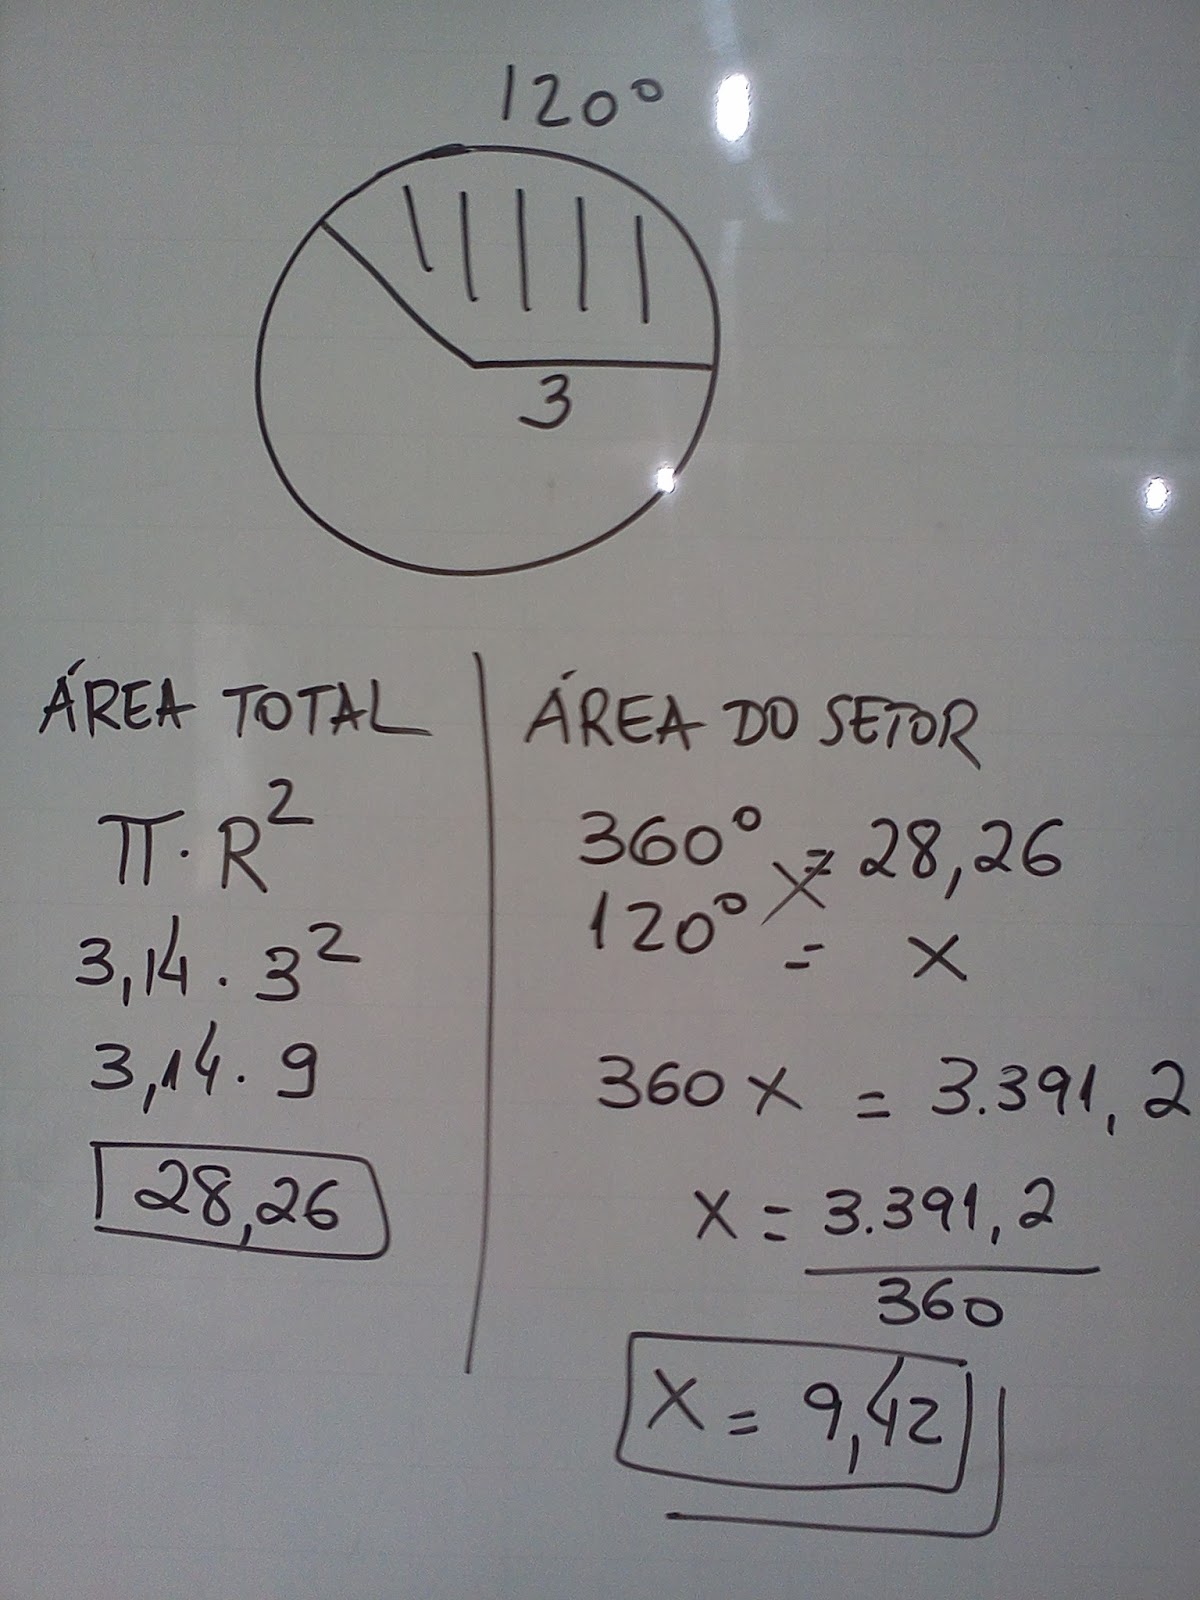 120°
3
ÁREA TOTAL
π·R²
3,14 . 3²
3,14 . 9
28,26
ÁREA DO SETOR
360° = 28,26
120° = x
360x = 3.391,2
x = 3.391,2
360
x = 9,42